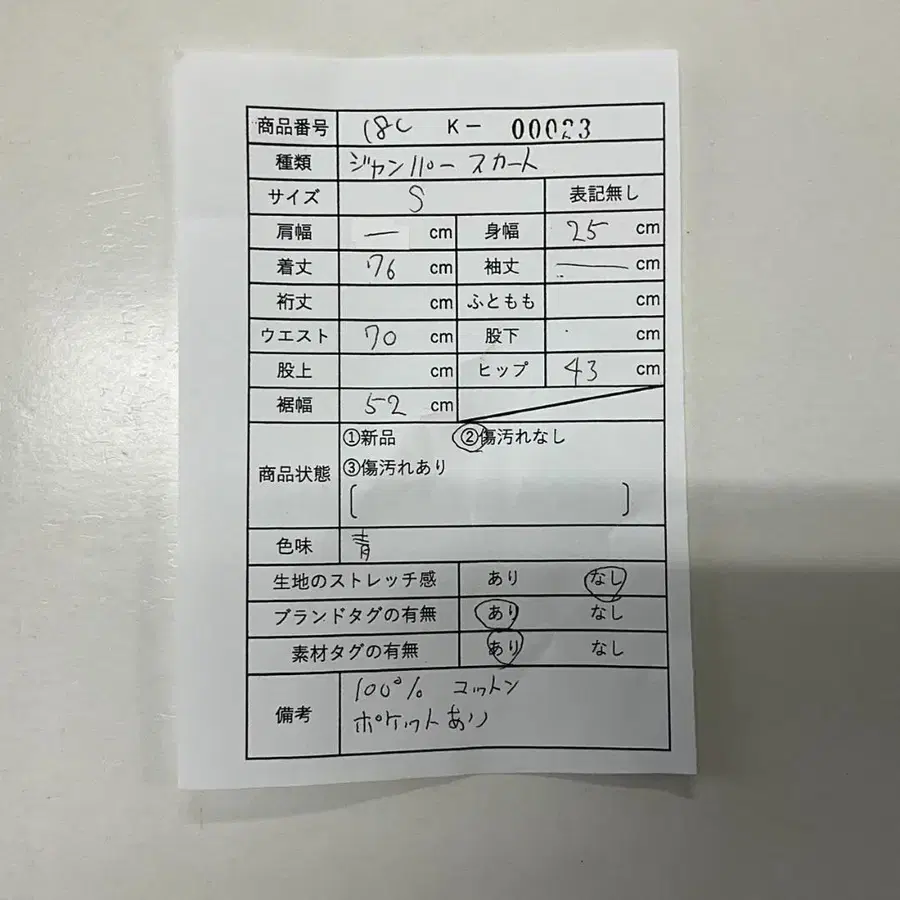 商品番号 18C K- 00023
種類 ジャンパースカート
サイズ S 表記無し
肩幅 ― cm 身幅 25 cm
着丈 76 cm 袖丈 ― cm
裄丈 cm ふともも cm
ウエスト 70 cm 股下 cm
股上 cm ヒップ 43 cm
裾幅 52 cm
商品状態 ①新品 ②傷汚れなし
③傷汚れあり
[ ]
色味 青
生地のストレッチ感 あり なし
ブランドタグの有無 あり なし
素材タグの有無 あり なし
備考 100% コットン
ポケットあり